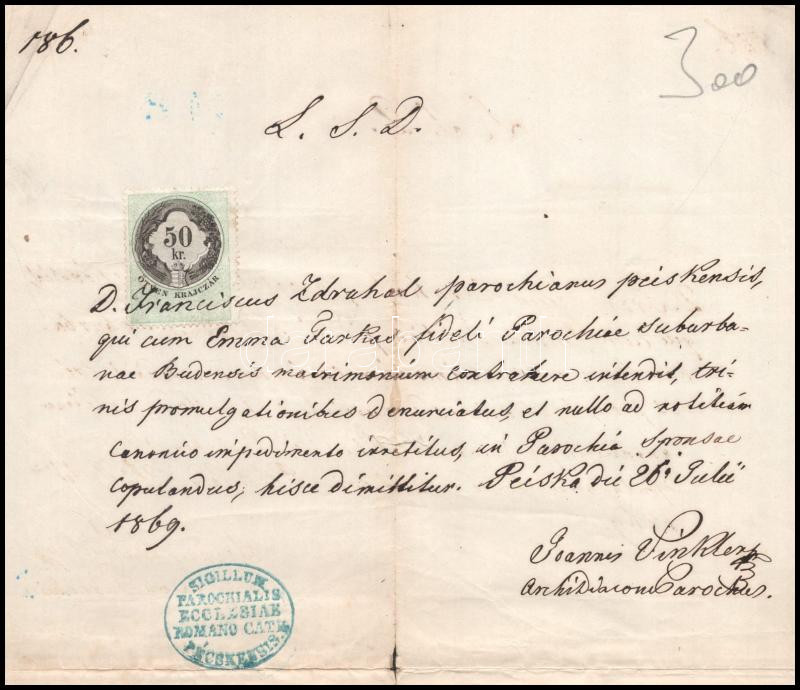 186.
300
L. S. D.
50
kr.
ÖTVEN KRAJCZÁR
D. Franciscus Zdrahal parochianus pécskensis,
qui cum Emma Farkas fideli Parochiae suburba-
nae Budensis matrimonium contrahere intendit, tri-
nis promulgationibus denunciatus, et nullo ad notitiam
canonico impedimento irretitus, in Parochia sponsae
copulandus, hisce dimittitur. Pécska die 26a Julii
1869.
Joannes Vinkler
Archidiaconus Parochus.
SIGILLUM
PAROCHIALIS
ECCLESIAE
ROMANO CATH.
PÉCSKENSIS.